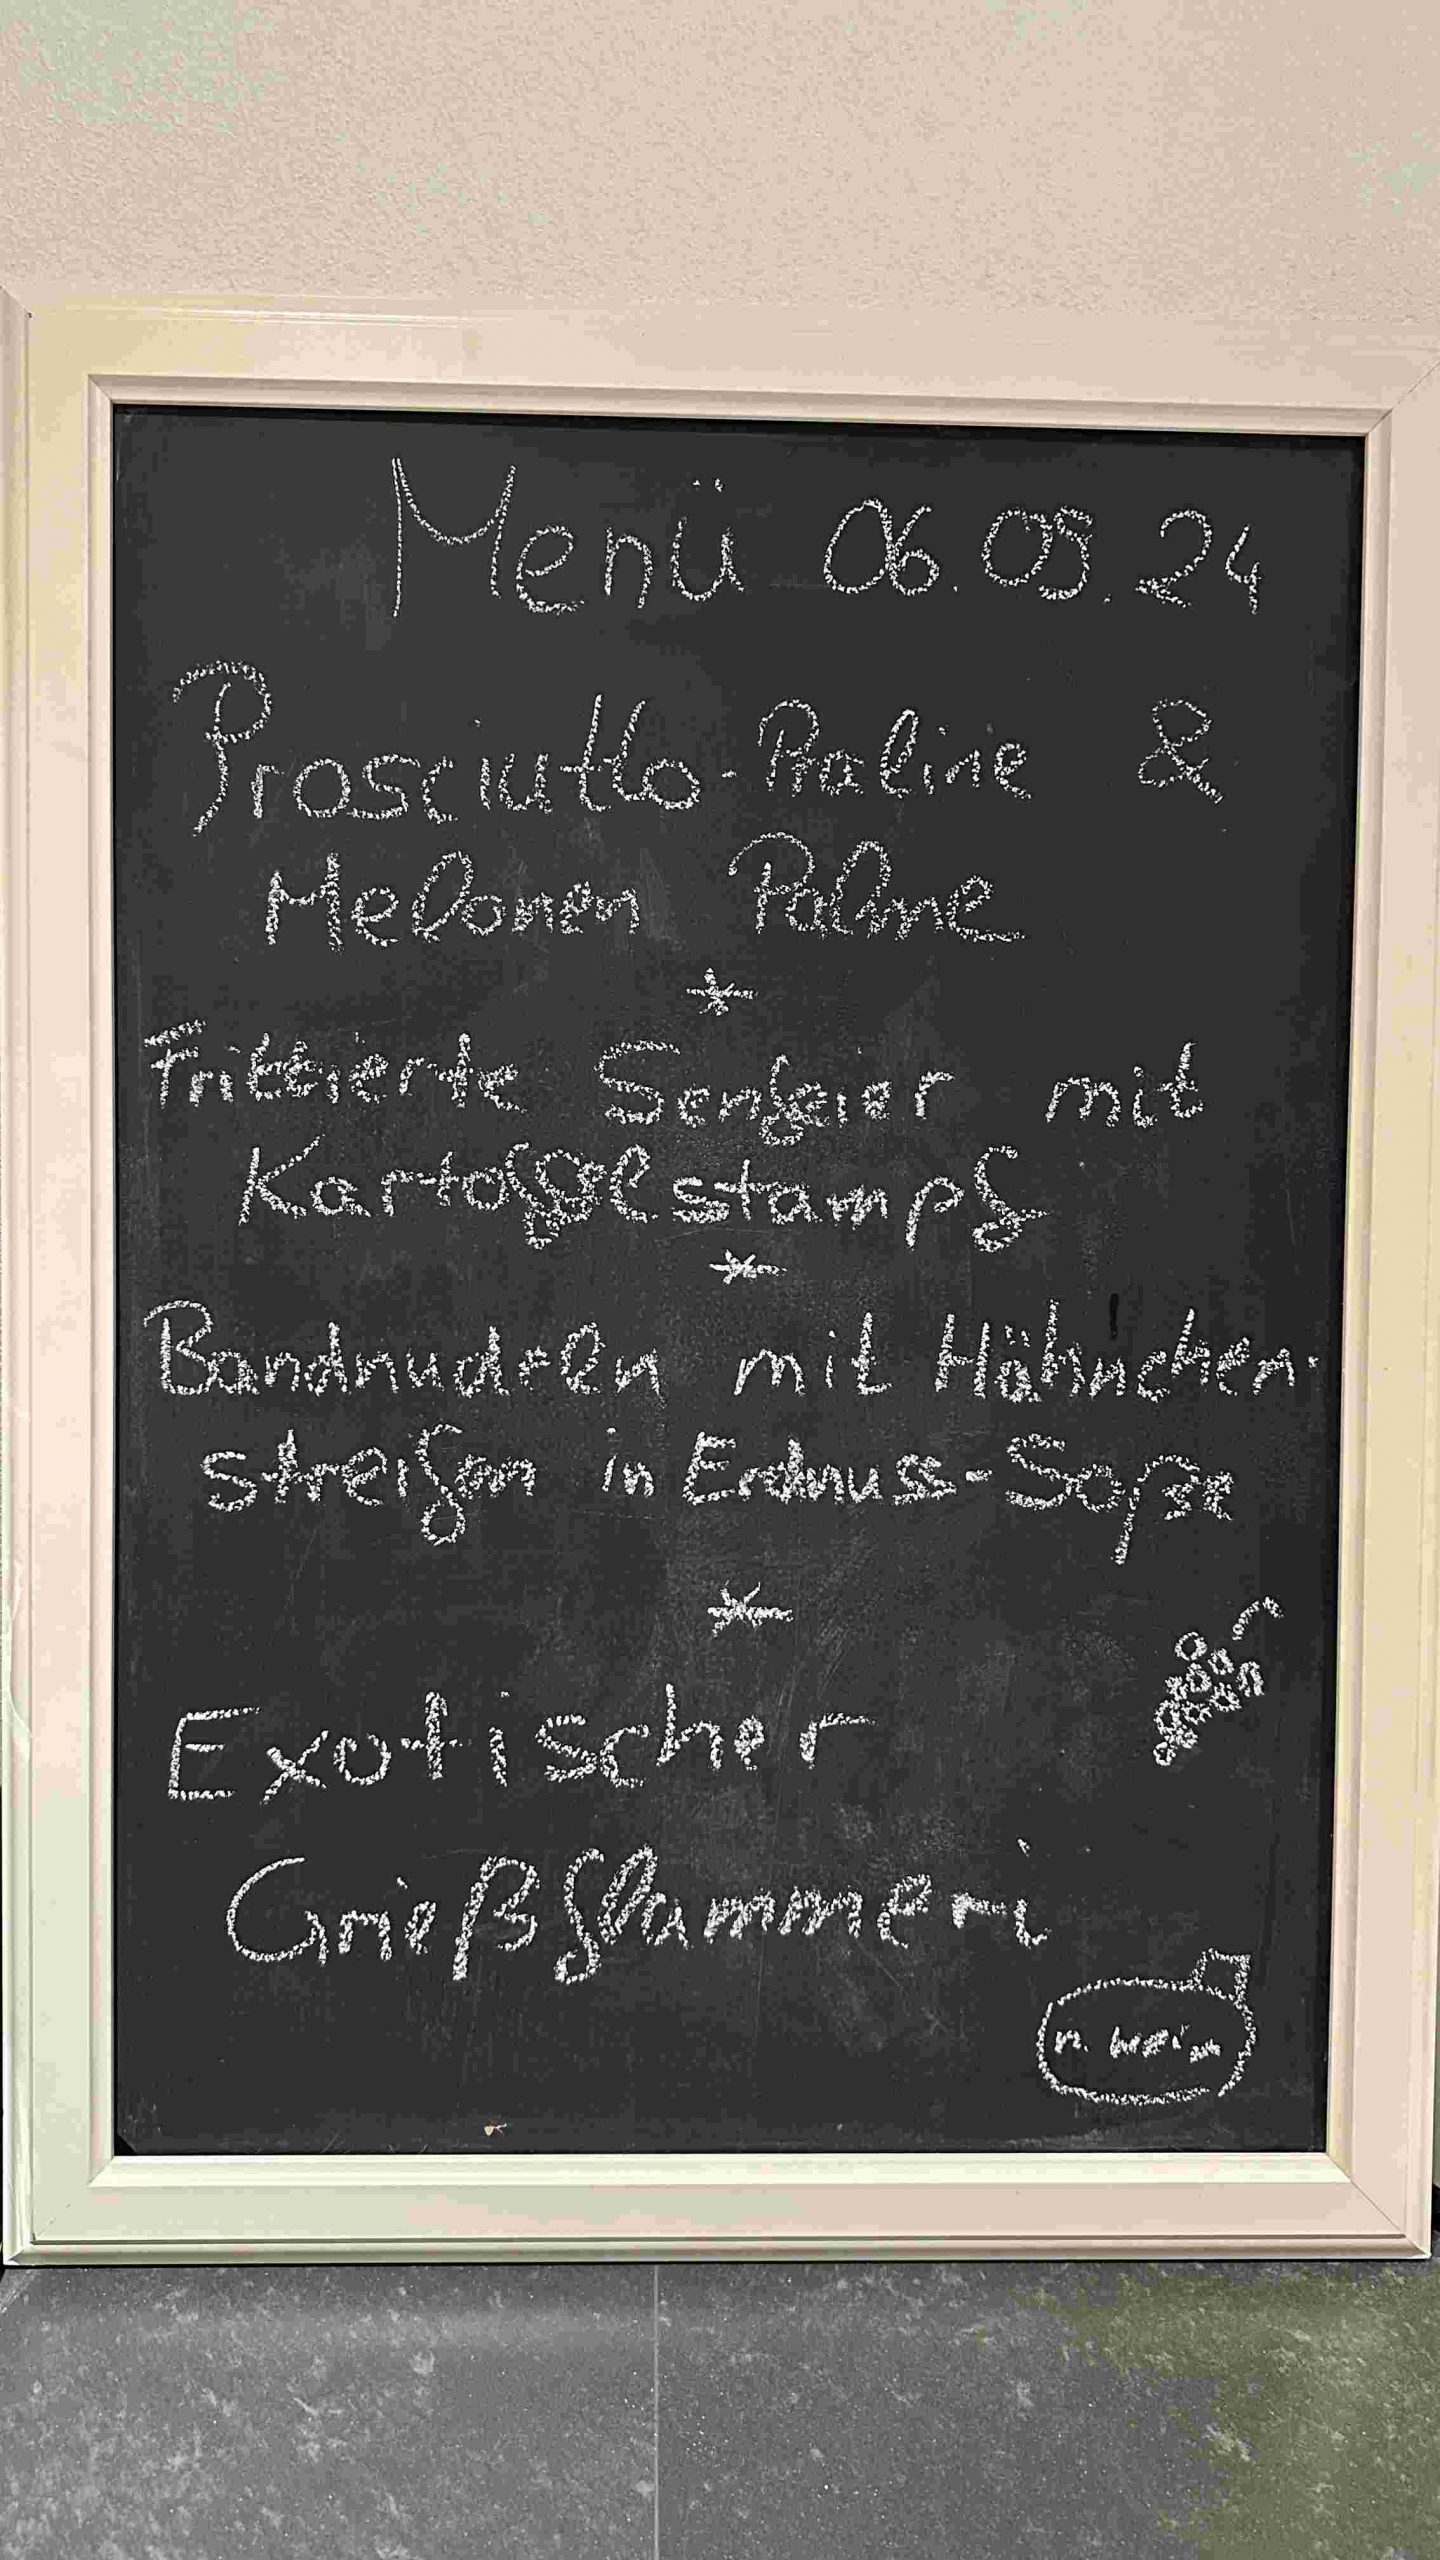 Menü 06.05.24
Prosciutto-Praline &
Melonen Palme
*
Frittierte Senfeier mit
Kartoffelstampf
*
Bandnudeln mit Hähnchen-
streifen in Erdnuss-Soße
*
Exotischer
Grießflammeri
n. Wein